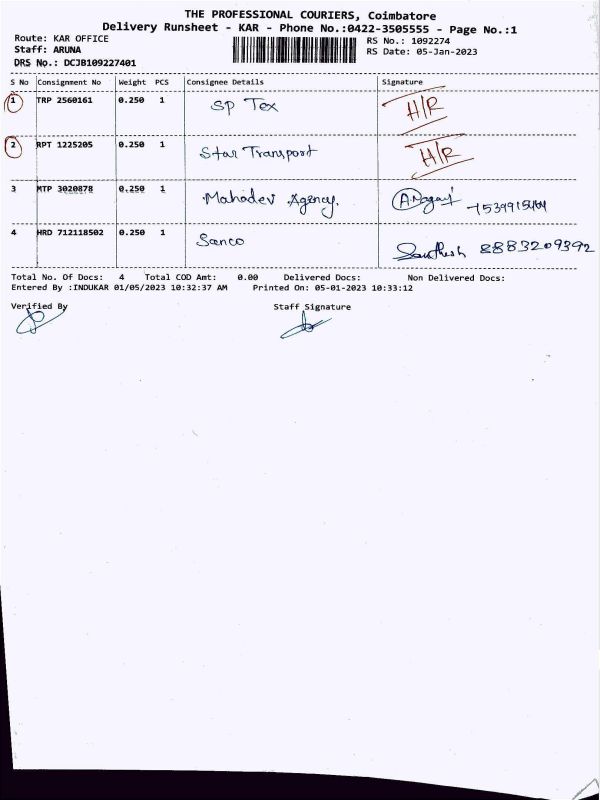 THE PROFESSIONAL COURIERS, Coimbatore
Delivery Runsheet - KAR - Phone No.:0422-3505555 - Page No.:1
Route: KAR OFFICE RS No.: 1092274
Staff: ARUNA RS Date: 05-Jan-2023
DRS No.: DCJB109227401
S No Consignment No Weight PCS Consignee Details Signature
1 TRP 2560161 0.250 1 SP Tex H/R
2 RPT 1225205 0.250 1 Star Transport H/R
3 MTP 3020878 0.250 1 Mahadev Agency.
4 HRD 712118502 0.250 1 Sanco Santhosh 8883209392
Total No. Of Docs: 4 Total COD Amt: 0.00 Delivered Docs: Non Delivered Docs:
Entered By :INDUKAR 01/05/2023 10:32:37 AM Printed On: 05-01-2023 10:33:12
Verified By Staff Signature